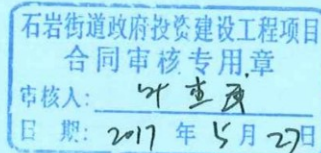 石岩街道政府投资建设工程项目
合同审核专用章
审核人: 叶查
日 期: 2017 年 5 月 27日